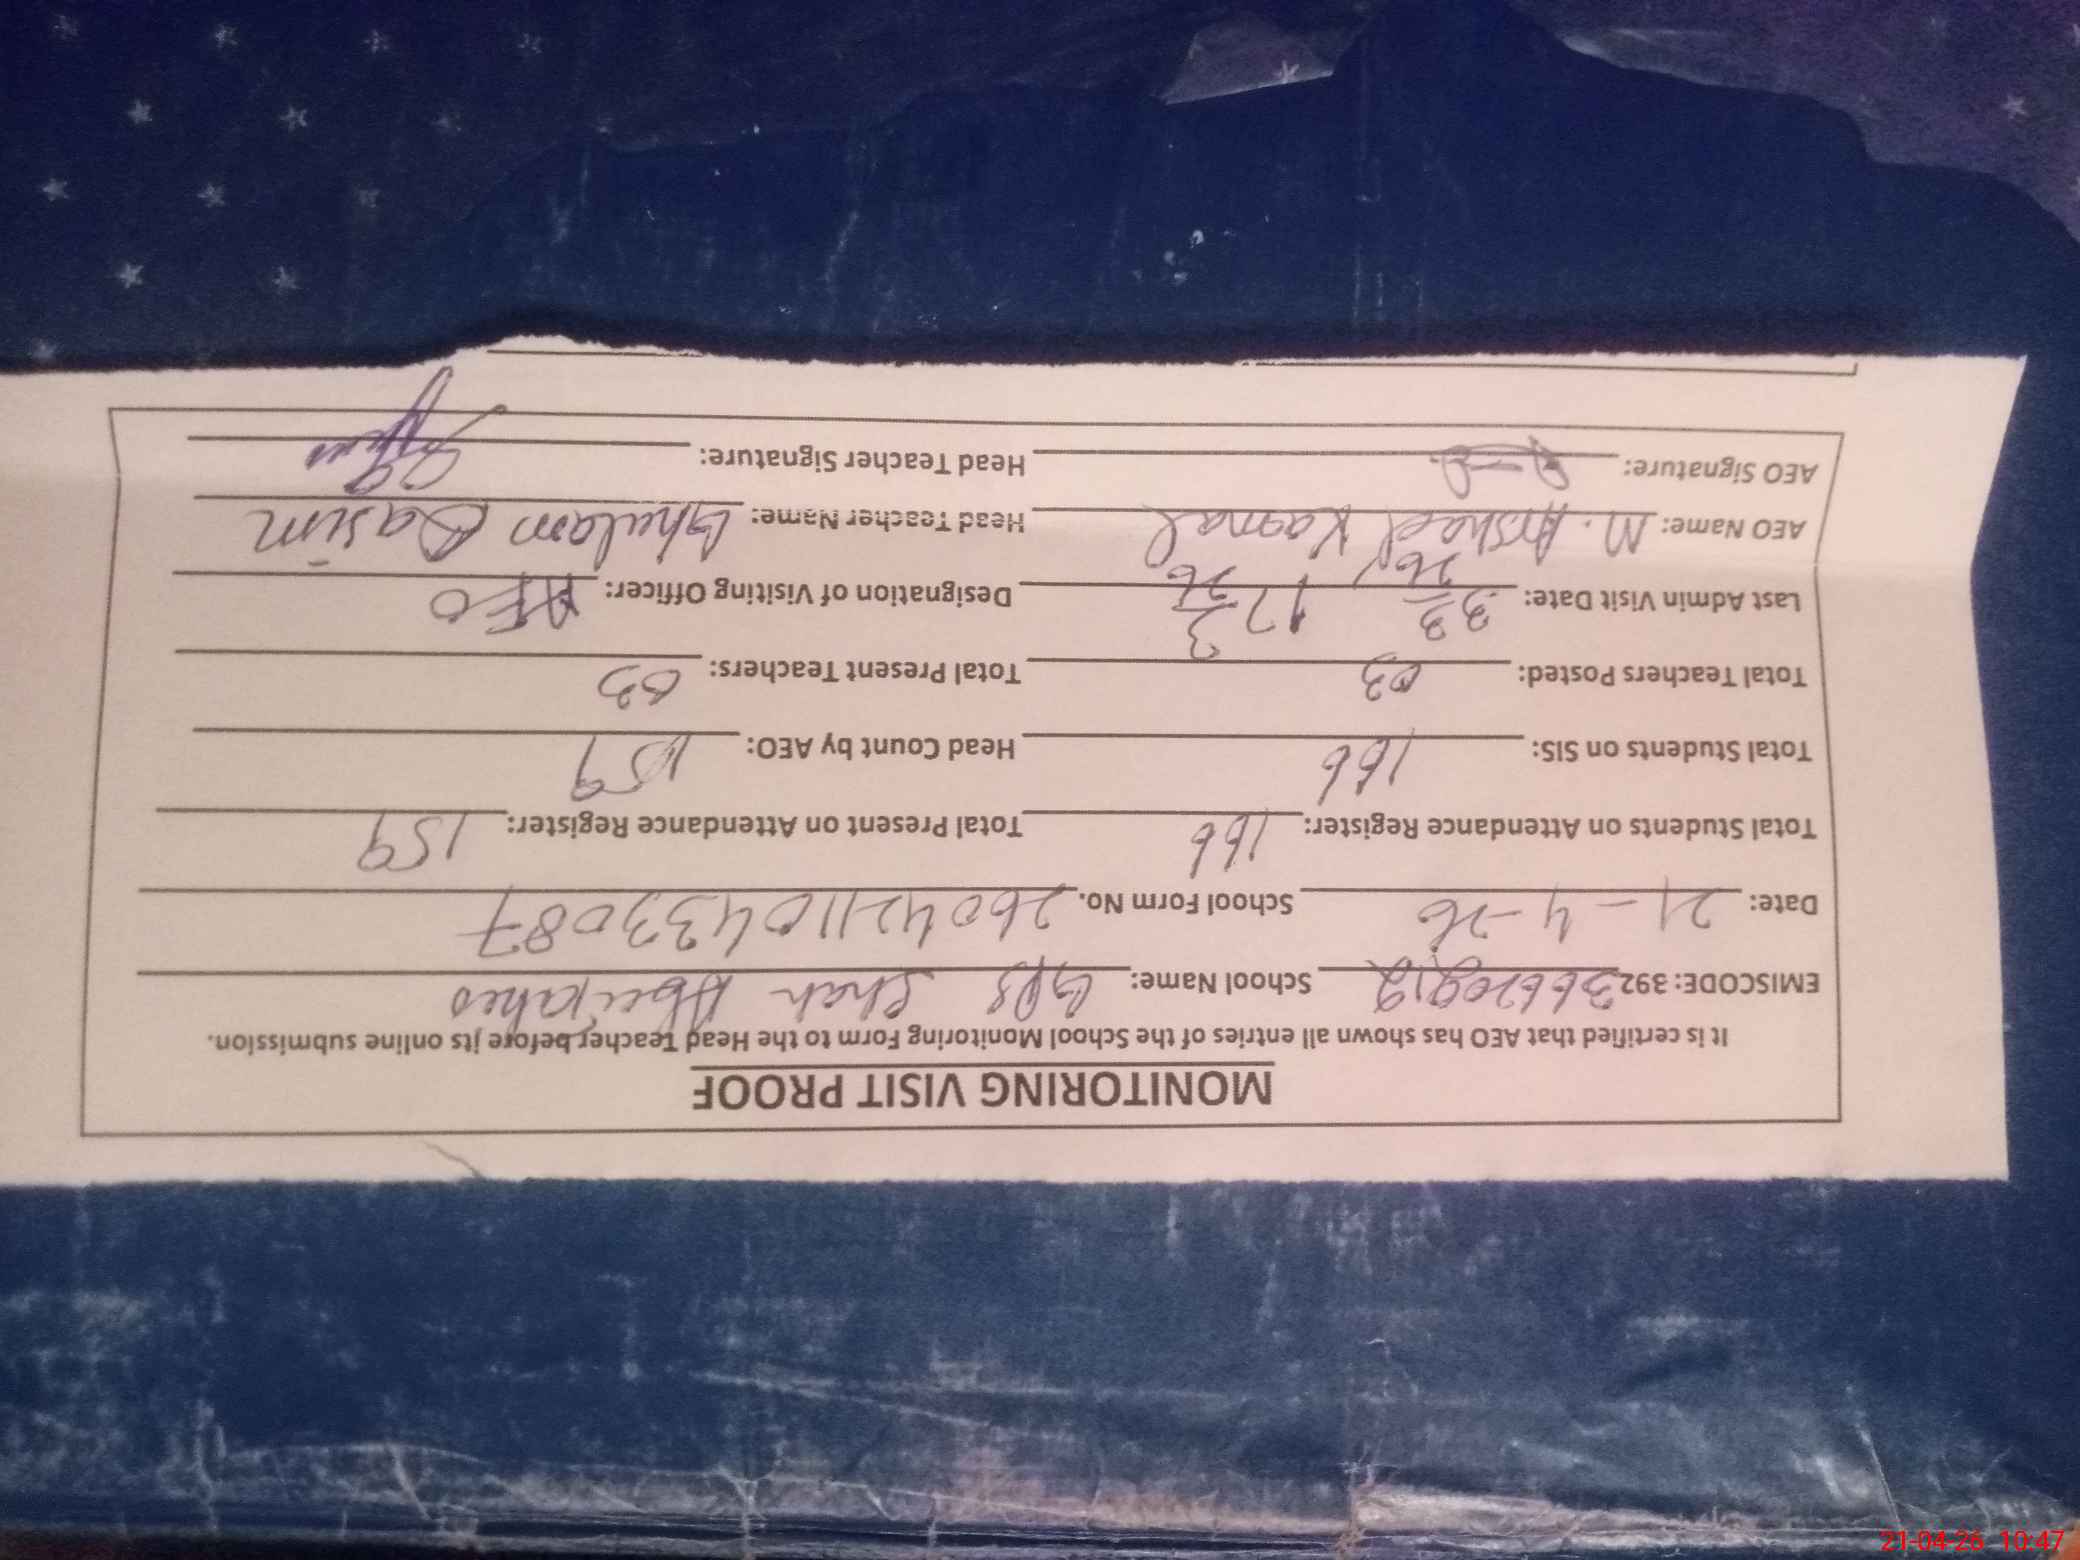 MONITORING VISIT PROOF
It is certified that AEO has shown all entries of the School Monitoring Form to the Head Teacher before its online submission.
EMISCODE: 392 School Name: GPS Shah
Date: 21-4-26 School Form No. 26042110433087
Total Students on Attendance Register: 166 Total Present on Attendance Register: 159
Total Students on SIS: 166 Head Count by AEO: 159
Total Teachers Posted: 03 Total Present Teachers: 03
Last Admin Visit Date: Designation of Visiting Officer: AEO
AEO Name: M. Arshad Kamal Head Teacher Name: Ghulam Qasim
AEO Signature: Head Teacher Signature:
21-04-26 10:47